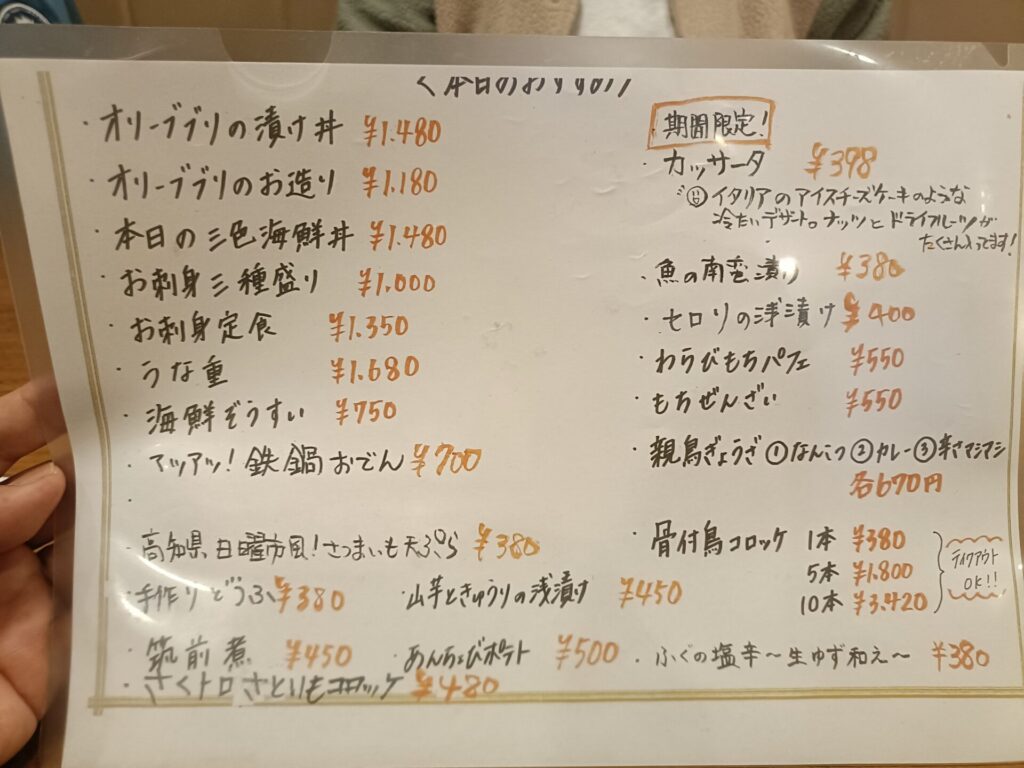 〈本日のおすすめ〉
・オリーブブリの漬け丼 ¥1.480
・オリーブブリのお造り ¥1.180
・本日の三色海鮮丼 ¥1.480
・お刺身三種盛り ¥1.000
・お刺身定食 ¥1.350
・うな重 ¥1.680
・海鮮ぞうすい ¥750
・アツアツ!鉄鍋おでん ¥700
・
・高知県日曜市風!さつまいも天ぷら ¥380
・手作りどうふ ¥380
・山芋ときゅうりの浅漬け ¥450
・筑前煮 ¥450
・あんちょびポテト ¥500
・さくトロさといもコロッケ ¥480
期間限定!
・カッサータ ¥398
イタリアのアイスチーズケーキのような
冷たいデザート。ナッツとドライフルーツが
たくさん入ってます!
・魚の南蛮漬け ¥380
・セロリの浅漬け ¥400
・わらびもちパフェ ¥550
・もちぜんざい ¥550
・親鳥ぎょうざ ①なんこつ②カレー③辛さマシマシ
各670円
・骨付鳥コロッケ 1本 ¥380
5本 ¥1.800
10本 ¥3.420
テイクアウト
OK!!
・ふぐの塩辛〜生ゆず和え〜 ¥380